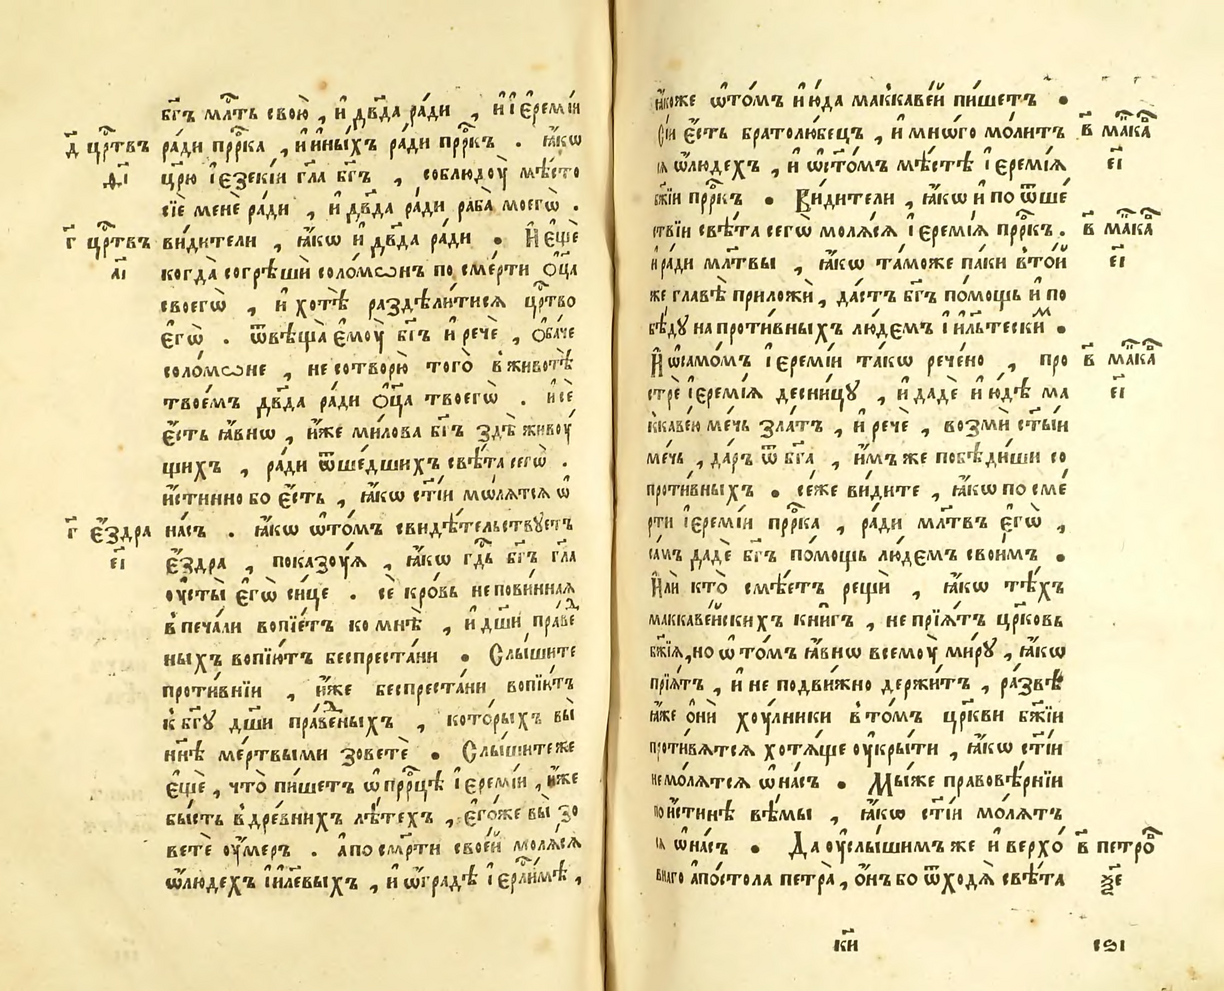 бг҃ъ млⷭ҇ть свою̀ , и҆ дв҃да ра́ди , и҆ і҆ереми́и
д҃ црⷭ҇твъ ра́ди прⷪ҇рка , и҆ и҆ны́хъ ра́ди прⷪ҇ркъ . ꙗ҆́кѡ
д҃і црю̀ і҆езекі́и гл҃а бг҃ъ , соблюдоу̀ мѣ́сто
сїѐ менѐ ра́ди , и҆ дв҃да ра́ди раба̀ моегѡ̀ .
г҃ црⷭ҇твъ ви́дители , ꙗ҆́кѡ и҆ дв҃да ра́ди • И҆ є҆щѐ
а҃і когда̀ согрѣшѝ соломѡ́нъ по сме́рти ѻ҆ц҃а
своегѡ̀ , и҆ хотѣ̀ раздѣли́тисѧ црⷭ҇тво
є҆гѡ̀ . ѿвѣща̀ є҆моу̀ бг҃ъ и҆ речѐ , ѻ҆ба́че
соломѡ́не , не сотворю̀ того̀ в животѣ̀
твое́мъ дв҃да ра́ди ѻ҆ц҃а твоегѡ̀ . и҆ сѐ
є҆́сть ꙗ҆́внѡ , и҆́же ми́лова бг҃ъ здѣ̀ живоу́
щихъ , ра́ди ѿше́дшихъ свѣ́та сегѡ̀ .
и҆́стинно бо є҆́сть , ꙗ҆́кѡ ст҃і́и мѡ́лѧтсѧ ѡ҆
г҃ є҆́здра на́съ . ꙗ҆́кѡ ѡ҆то́мъ свидѣ́тельствꙋетъ
є҃і є҆́здра , показоу́ѧ , ꙗ҆́кѡ гдⷭ҇ь бг҃ъ гл҃а
оу҆сты̀ є҆гѡ̀ си́це . сѐ кро́вь непови́ннаѧ
в печа́ли вопїе́тъ ко мнѣ̀ , и҆ дш҃и пра́ве
ныхъ вопїю́тъ беспреста́ни • Слы́шите
проти́внїи , и҆́же беспреста́ни вопїю́тъ
к бг҃ꙋ дш҃и пра́веⷣныхъ , кото́рыхъ вы̀
нн҃ѣ ме́ртвыми зоветѐ • Слы́шите же
є҆щѐ , что̀ пи́шетъ ѡ҆ прⷪ҇рцѣ і҆ереми́и , и҆́же
бы́сть в дре́внихъ лѣ́техъ , є҆го́же вы̀ зо
ветѐ оу҆́меръ . а҆ по сме́рти свое́й молѧ́сѧ
ѡ҆ лю́дехъ і҆и҃левыхъ , и҆ ѡ҆ гра́дѣ і҆ерⷭ҇ли́мѣ ,
ꙗ҆́коже ѡ҆то́мъ и҆ и҆ю́да маккаве́й пи́шетъ •
Сі́и є҆́сть братолю́бецъ , и҆ мнѡ́го мо́литъ в҃ макⷡ҇а
сѧ ѡ҆ лю́дехъ , и҆ ѡ҆ сто́мъ мѣ́стѣ і҆еремі́ѧ є҃і
бж҃іи прⷪ҇ркъ • Ви́дители , ꙗ҆́кѡ и҆ по ѿше́
ствїи свѣ́та сегѡ̀ молѧ́сѧ і҆еремі́ѧ прⷪ҇ркъ . в҃ макⷡ҇а
и҆ ра́ди мл҃твы , ꙗ҆́кѡ та́може па́ки в то́й є҃і
же главѣ̀ приложѝ , да́стъ бг҃ъ по́мощь и҆ по
бѣ́дꙋ на проти́вныхъ лю́демъ і҆и҃льтескиⷨ •
И҆ ѡ҆ само́мъ і҆еремі́и та́кѡ рече́но , про в҃ макⷡ҇а
стрѐ і҆еремі́ѧ десни́цꙋ , и҆ дадѐ и҆ю́дѣ ма є҃і
ккаве́ю ме́чь зла́тъ , и҆ речѐ , возмѝ ст҃ы́и
ме́чь , да́ръ ѿ бг҃а , и҆́мъ же побѣди́ши со
проти́вныхъ • се́же ви́дите , ꙗ҆́кѡ по сме́
рти і҆еремі́и прⷪ҇рка , ра́ди мл҃твъ є҆гѡ̀ ,
са́мъ дадѐ бг҃ъ по́мощь лю́демъ свои́мъ •
И҆лѝ кто̀ смѣ́етъ рещѝ , ꙗ҆́кѡ тѣ́хъ
маккаве́йскихъ кни́гъ , не прїѧ́тъ цр҃ковь
бж҃їѧ , но ѡ҆ то́мъ ꙗ҆́внѡ всемоу̀ ми́рꙋ , ꙗ҆́кѡ
прїѧ́тъ , и҆ не подви́жно держи́тъ , ра́звѣ
ꙗ҆́же ѻ҆нѝ хоу́лники в то́мъ цр҃кви бж҃їи
проти́вѧтсѧ хотѧ́ще оу҆кры́ти , ꙗ҆́кѡ ст҃і́и
не мо́лѧтсѧ ѡ҆ на́съ • Мы́же правовѣ́рнїи
по и҆́стинѣ вѣ́мы , ꙗ҆́кѡ ст҃і́и мо́лѧтъ
сѧ ѡ҆ на́съ • Да оу҆слы́шимъ же и҆ верхо́ в҃ петроⷡ҇
внаго а҆по́стола петра̀ , ѻ҆́нъ бо ѿходѧ̀ свѣ́та ѯ҃е
к҃и